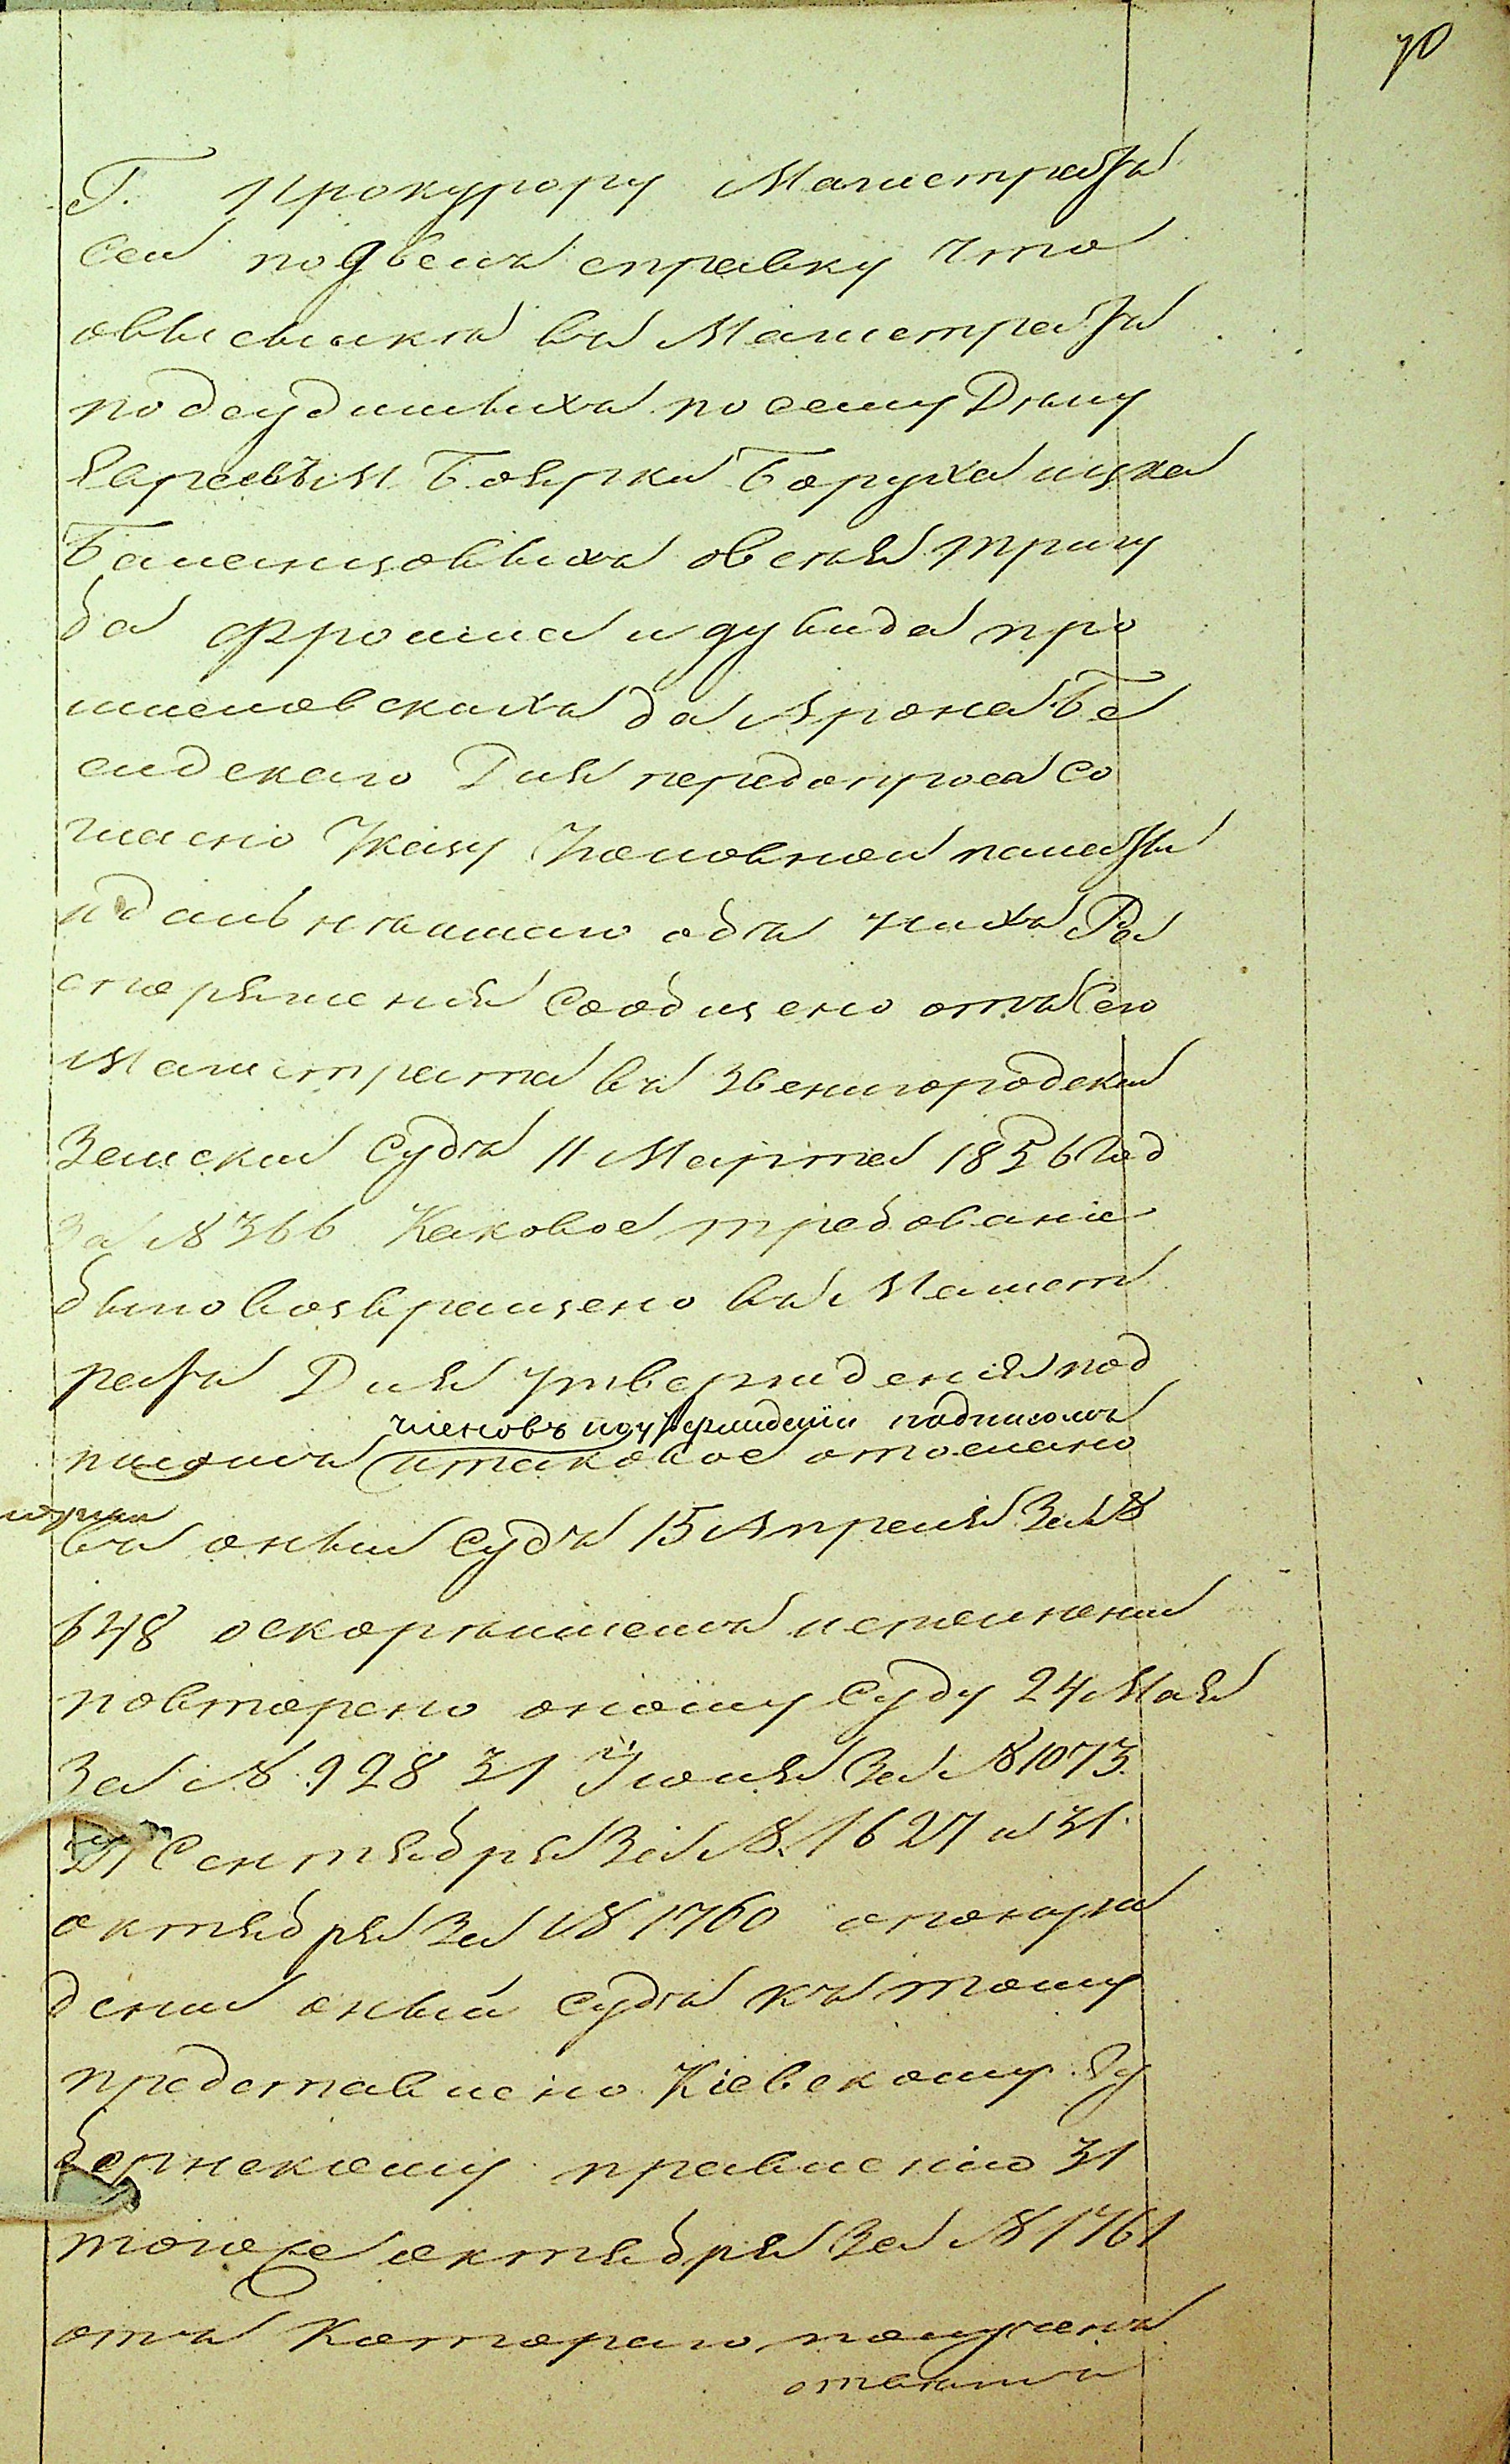 70
Г. Прокурору Магистратъ
сей подвелъ справку что
овысылкѣ въ Магистратъ
подсудимыхъ по сему Дѣлу
Евреевъ Боярки Боруха ицка
Баменцовыхъ овсѣя тригу
ба Фроима и дувида про
шмеловскихъ да Арона Бѣ
лидскаго Для передопроса Со
гласно Указу Уголовной палаты
и дальнѣйшаго объ нихъ Ра
споряженія Сообщено отъ Сего
Магистрата въ Звенигородскій
Земскій Судъ 11 Марта 1856 Год
За № 366 Каковое требованіе
было возвращено въ Магист
ратъ Для утвержденія под
членовъ подписомъ
писомъ и таковое отослано
въ оный Судъ 15 Апреля За №
648 оскорѣйшемъ исполненіи
повторено оному Суду 24 Мая
За № 928 31 Іюля За № 1073
27 Сентября За № 1627 и 31
октября За № 1760 опонуж
деніи оный Судъ къ тому
представлено Кіевскому Гу
бернскому правленію 31
тогоже октября За № 1761
отъ Котораго полученъ
отвѣтъ